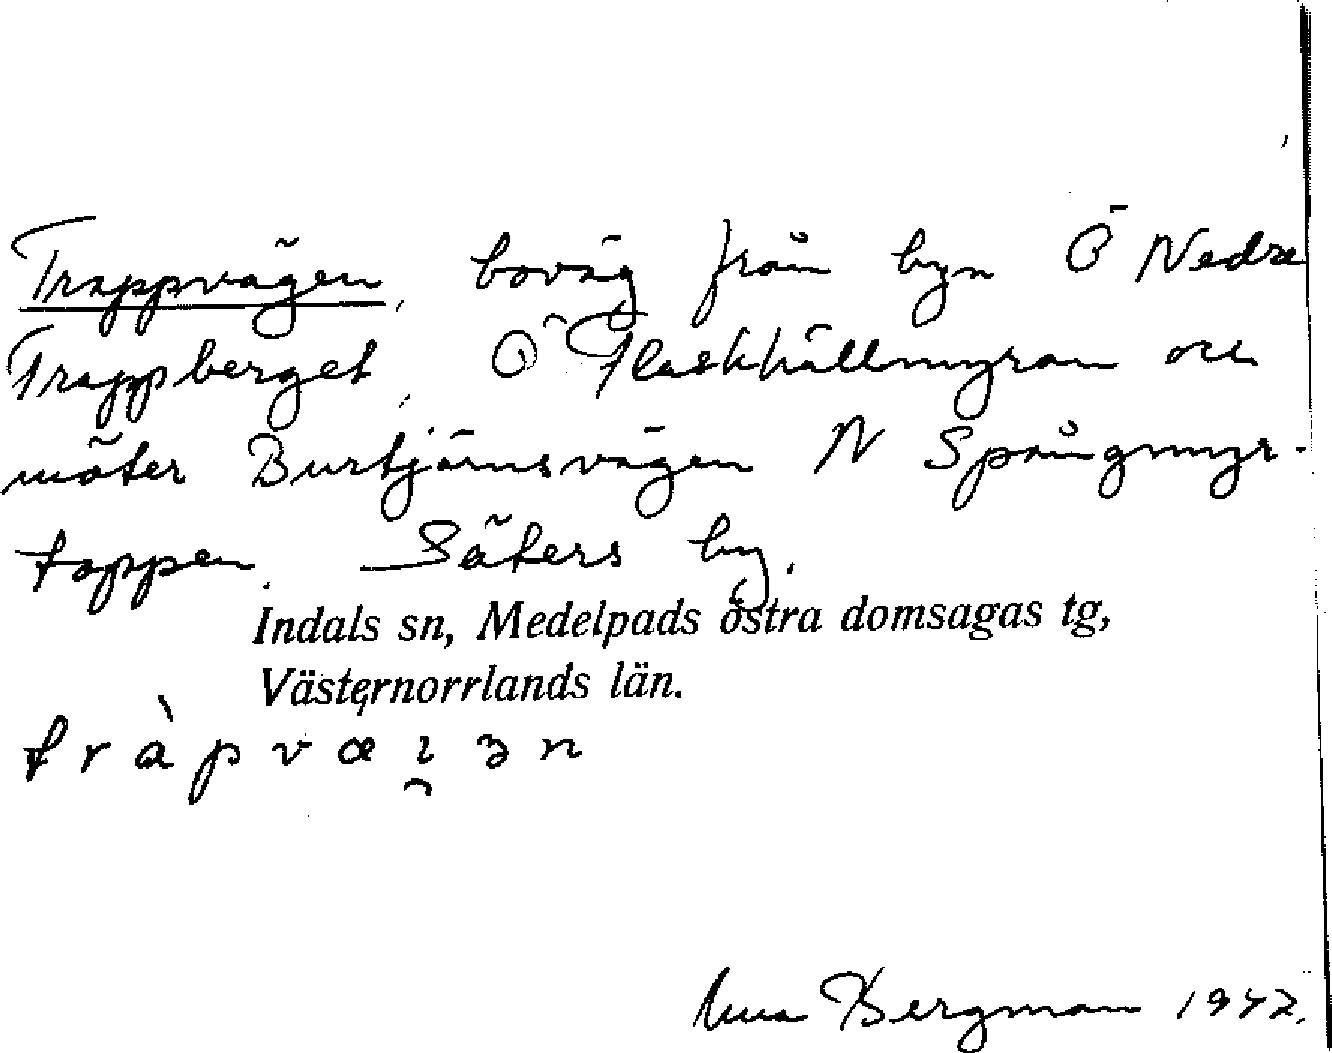 Trappvägen, boväg från byn Ö Nedre
Trappberget, Ö Flaskhällmyran och
möter Burtjärnsvägen N Spångmyr-
toppen. Säters by.
Indals sn, Medelpads östra domsagas tg,
Västernorrlands län.
tràpvæı̯ɜn
Bergman 1942.